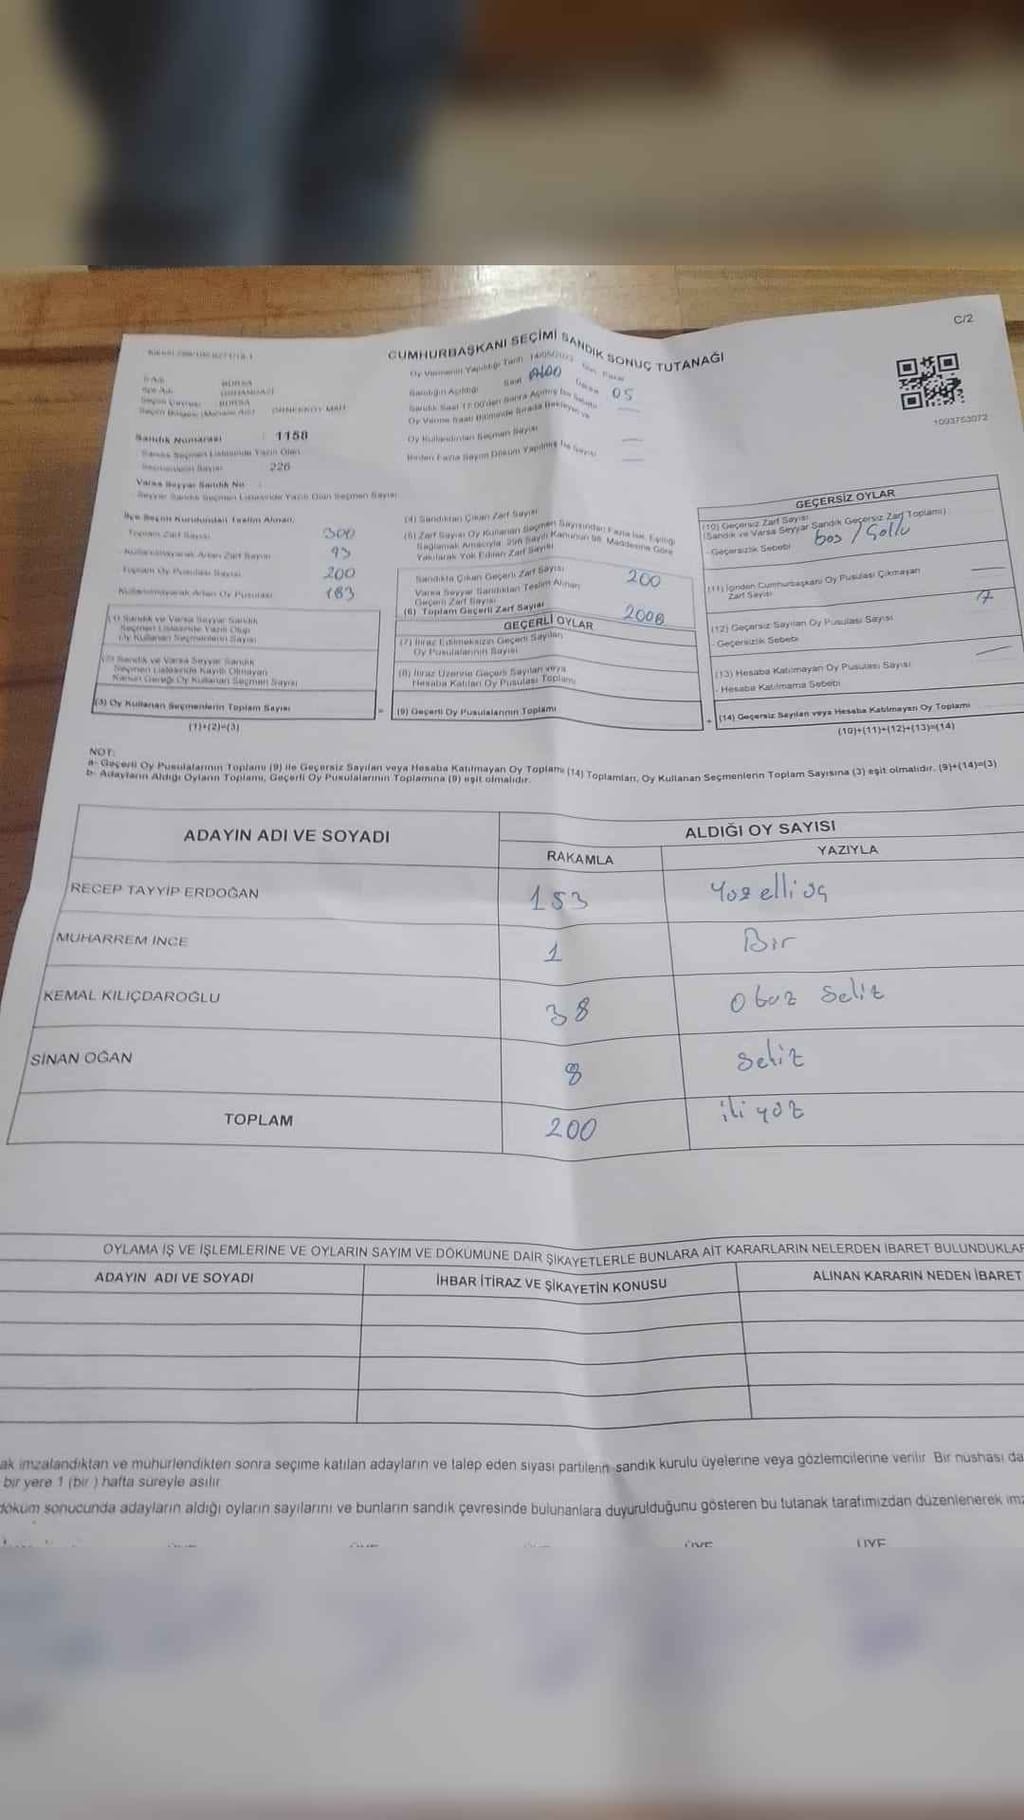 C/2
CUMHURBAŞKANI SEÇİMİ SANDIK SONUÇ TUTANAĞI
Oy Vermenin Yapıldığı Tarih 14/05/2023
Saat
05
1093753072
BURSA
BURSA
Sandık Numarası : 1158
Sandık Seçmen Listesinde Yazılı Olan
Seçmenlerin Sayısı 226
Varsa Seyyar Sandık No
Seyyar Sandık Seçmen Listesinde Yazılı Olan Seçmen Sayısı
Oy Kullandırılan Seçmen Sayısı
Birden Fazla Sayım Döküm Yapılmış İse Sayısı
İlçe Seçim Kurulundan Teslim Alınan,
Toplam Zarf Sayısı 300
Kullanılmayarak Artan Zarf Sayısı 93
Toplam Oy Pusulası Sayısı 200
Kullanılmayarak Artan Oy Pusulası 183
(1) Sandık ve Varsa Seyyar Sandık
Seçmen Listesinde Yazılı Olup
Oy Kullanan Seçmenlerin Sayısı
(2) Sandık ve Varsa Seyyar Sandık
Seçmen Listesinde Kayıtlı Olmayan
Kanun Gereği Oy Kullanan Seçmen Sayısı
(3) Oy Kullanan Seçmenlerin Toplam Sayısı
(1)+(2)=(3)
(4) Sandıktan Çıkan Zarf Sayısı
(5) Zarf Sayısı Oy Kullanan Seçmen Sayısından Fazla İse, Eşitliği
Sağlamak Amacıyla, 298 Sayılı Kanunun 98. Maddesine Göre
Yakılarak Yok Edilen Zarf Sayısı
Sandıkta Çıkan Geçerli Zarf Sayısı 200
Varsa Seyyar Sandıktan Teslim Alınan
Geçerli Zarf Sayısı
(6) Toplam Geçerli Zarf Sayısı
GEÇERLİ OYLAR
(7) İtiraz Edilmeksizin Geçerli Sayılan
Oy Pusulalarının Sayısı
(8) İtiraz Üzerine Geçerli Sayılan veya
Hesaba Katılan Oy Pusulası Toplamı
(9) Geçerli Oy Pusulalarının Toplamı
GEÇERSİZ OYLAR
(10) Geçersiz Zarf Sayısı
(Sandık ve Varsa Seyyar Sandık Geçersiz Zarf Toplamı)
- Geçersizlik Sebebi
(11) İçinden Cumhurbaşkanı Oy Pusulası Çıkmayan
Zarf Sayısı
7
(12) Geçersiz Sayılan Oy Pusulası Sayısı
- Geçersizlik Sebebi
(13) Hesaba Katılmayan Oy Pusulası Sayısı
- Hesaba Katılmama Sebebi
+ (14) Geçersiz Sayılan veya Hesaba Katılmayan Oy Toplamı
(10)+(11)+(12)+(13)=(14)
NOT:
a- Geçerli Oy Pusulalarının Toplamı (9) ile Geçersiz Sayılan veya Hesaba Katılmayan Oy Toplamı (14) Toplamları, Oy Kullanan Seçmenlerin Toplam Sayısına (3) eşit olmalıdır. (9)+(14)=(3)
b- Adayların Aldığı Oyların Toplamı, Geçerli Oy Pusulalarının Toplamına (9) eşit olmalıdır.
ADAYIN ADI VE SOYADI
ALDIĞI OY SAYISI
RAKAMLA YAZIYLA
RECEP TAYYİP ERDOĞAN 153 Yüz elli üç
MUHARREM İNCE 1 Bir
KEMAL KILIÇDAROĞLU 38 Otuz Sekiz
SİNAN OĞAN 8 Sekiz
TOPLAM 200 iki yüz
OYLAMA İŞ VE İŞLEMLERİNE VE OYLARIN SAYIM VE DÖKÜMÜNE DAİR ŞİKAYETLERLE BUNLARA AİT KARARLARIN NELERDEN İBARET BULUNDUKLAR
ADAYIN ADI VE SOYADI İHBAR İTİRAZ VE ŞİKAYETİN KONUSU ALINAN KARARIN NEDEN İBARET
ak imzalandıktan ve mühürlendikten sonra seçime katılan adayların ve talep eden siyasi partilerin sandık kurulu üyelerine veya gözlemcilerine verilir. Bir nüshası da
bir yere 1 (bir) hafta süreyle asılır
döküm sonucunda adayların aldığı oyların sayılarını ve bunların sandık çevresinde bulunanlara duyurulduğunu gösteren bu tutanak tarafımızdan düzenlenerek imz